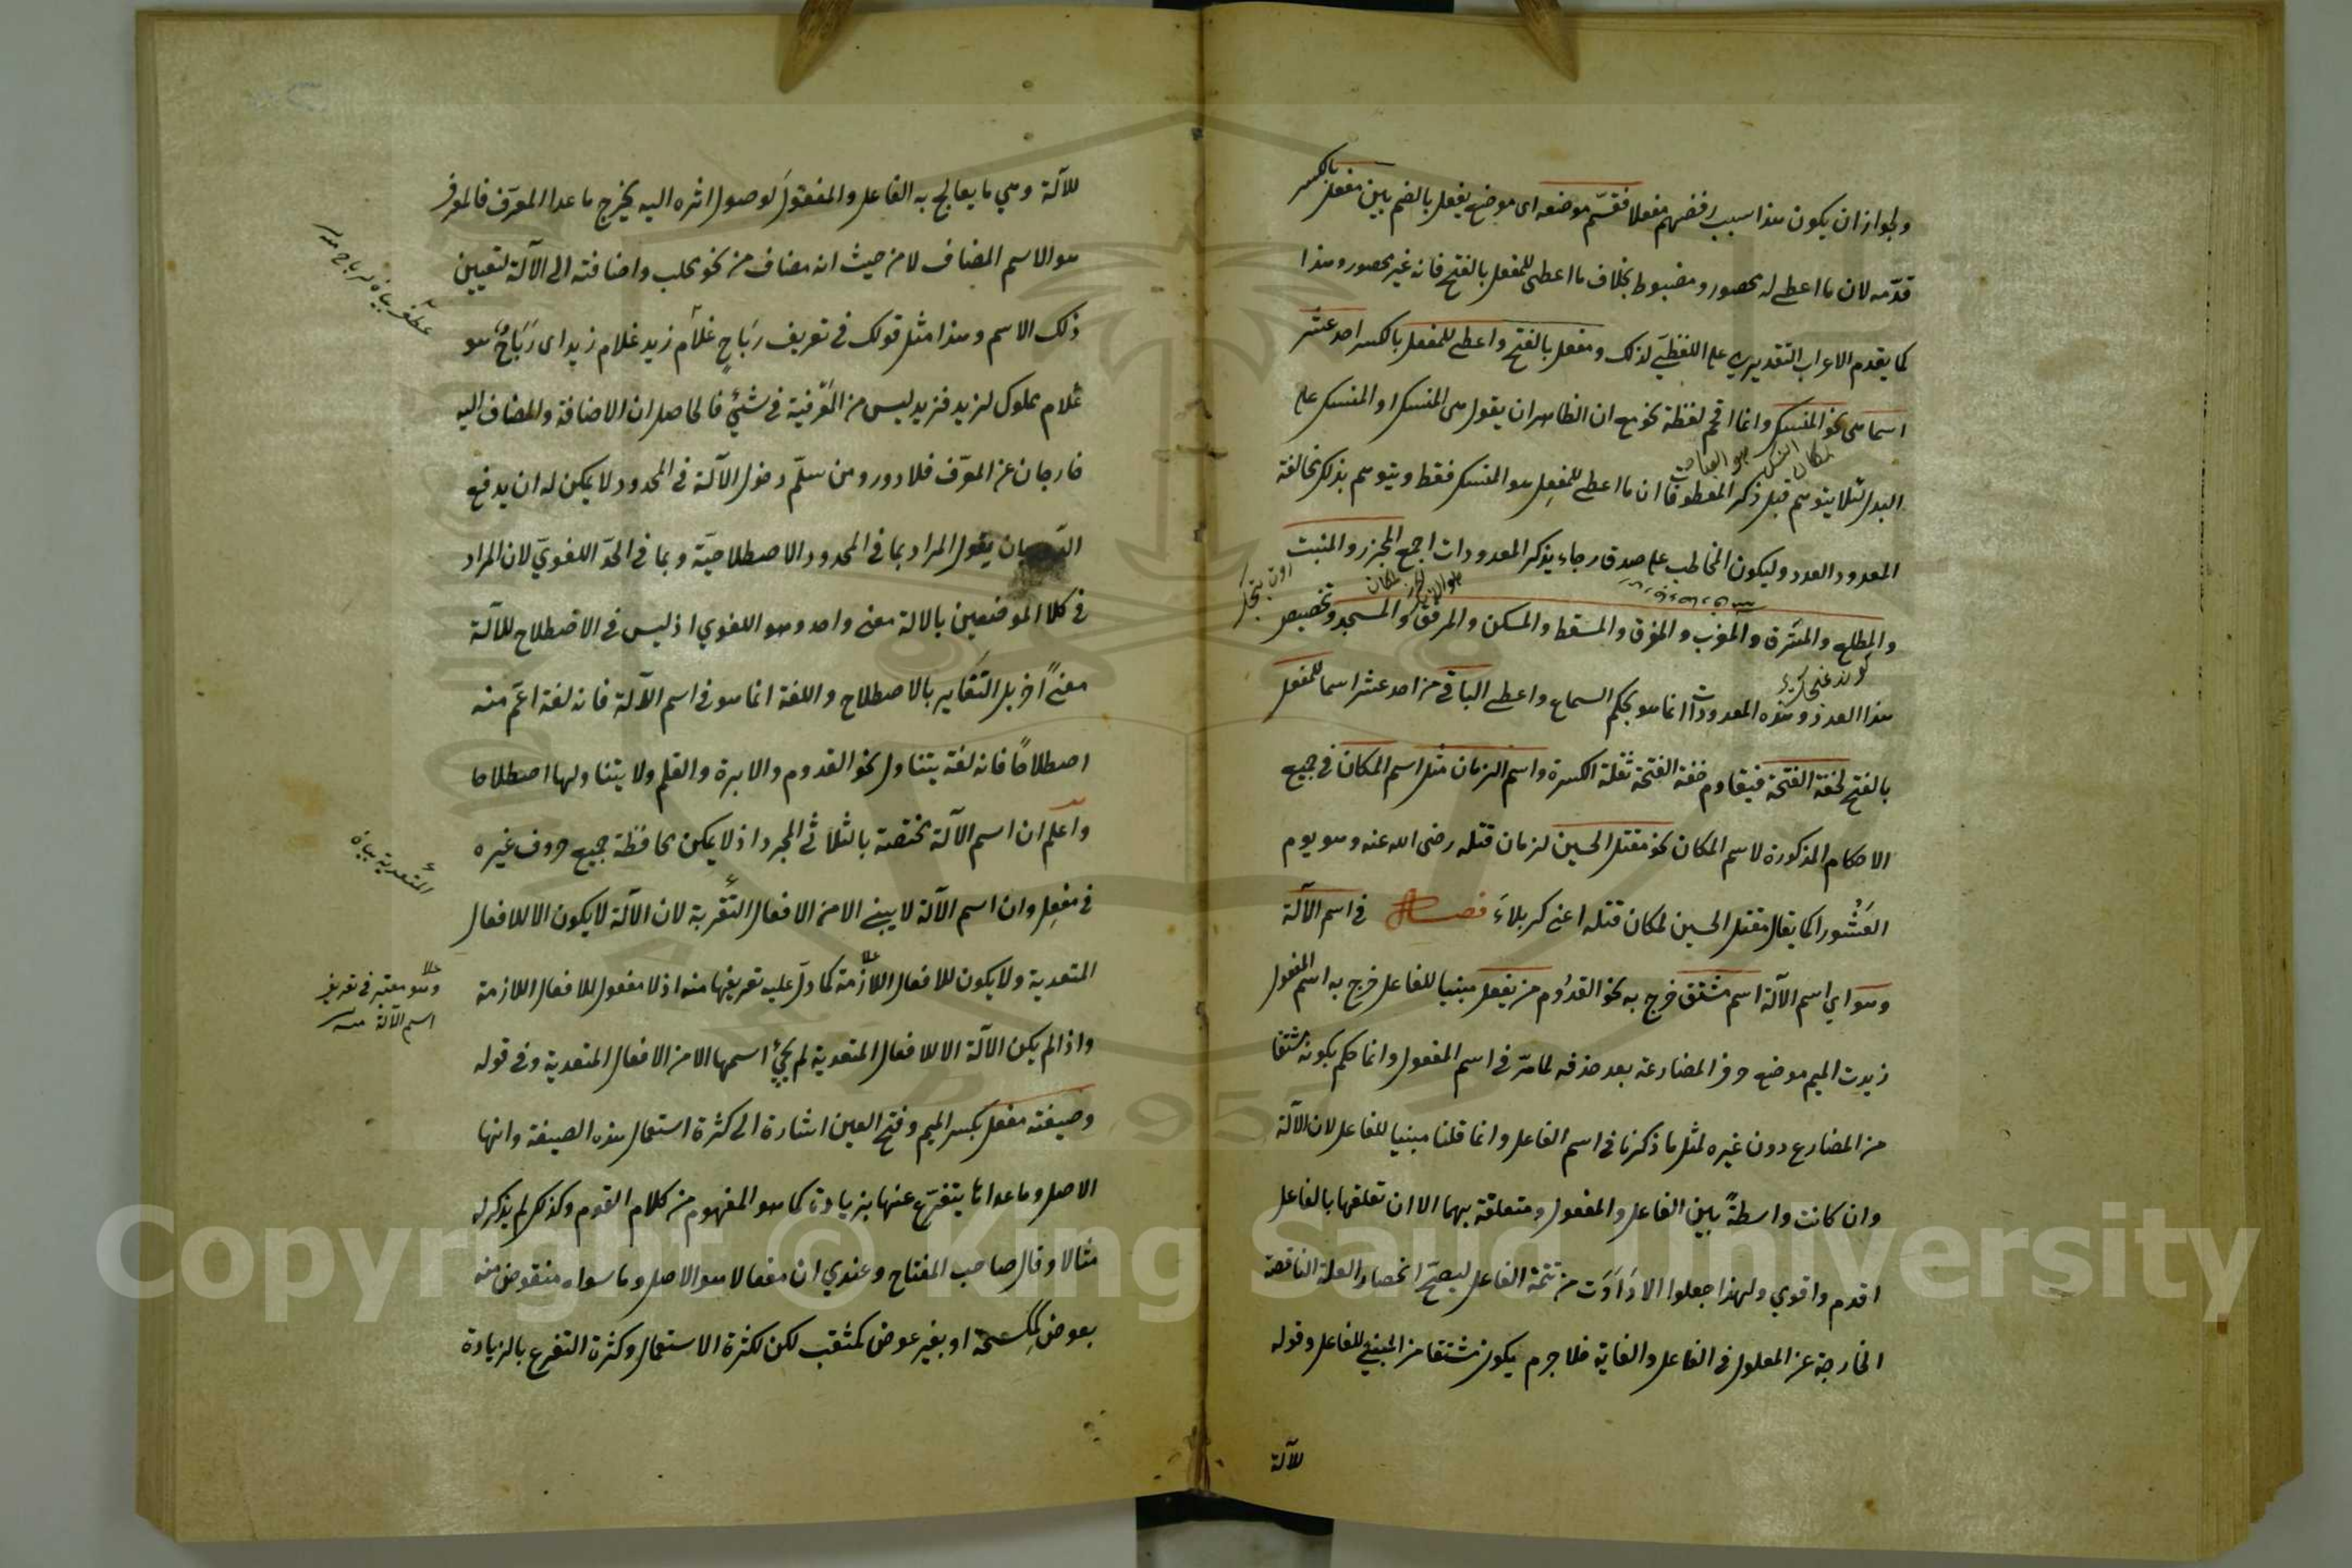 ولجواز ان يكون هذا سبب رفضهم مفعلا فقسّم موضعه اى موضع يفعل بالضم بين مفعل بالكسر
قدّمه لان ما اعطى له محصور ومضبوط بخلاف ما اعطى للمفعل بالفتح فانه غير محصور وهذا
كما يقدم الاعراب التقديرى على اللفظىّ لذلك ومفعل بالفتح واعطى للمفعل بالكسر احد عشر
اسما هى نحو المنسك وانما اقحم لفظة نحو مع ان الظاهر ان يقول هى المنسك او المنسك على
البدل لئلا يتوهم قبل ذكر المعطوفات ان ما اعطى للمفعِل هو المنسك فقط ويتوهم بذلك مخالفة
مكان النسك هو العبادة
المعدود العدد وليكون المخاطب على صدق رجاء بذكر المعدودات اجمع المجزر والمنبت
والمطلع والمشرق والمغرب والمفرق والمسقط والمسكن والمرفق والمسجد وتخصيص
هذا العدد وهذه المعدودات انما هو بحكم السماع واعطى الباقى من احد عشر اسما للمفعل
بالفتح لخفة الفتحة فيقاوم خفة الفتحة ثقلة الكسرة واسم الزمان مثل اسم المكان فى جميع
الاحكام المذكورة لاسم المكان نحو مقتل الحسين لزمان قتله رضى الله عنه وهو يوم
العَشُورا كما يقال مقتل الحسين لمكان قتله اعنى كربلاءَ فصل فى اسم الآلة
وهو اي اسم الآلة اسم مشتق خرج به نحو القدُوم من يفعل مبنيا للفاعل خرج به اسم المفعول
زيدت الميم موضع حرف المضارعة بعد حذفه لما مرّ فى اسم المفعول وانما حكم بكونه مشتقا
من المضارع دون غيره لمثل ما ذكرنا فى اسم الفاعل وانما قلنا مبنيا للفاعل لان الآلة
وان كانت واسطةً بين الفاعل والمفعول ومتعلقة بهما الا ان تعلقها بالفاعل
اقدم واقوي ولهذا جعلوا الادَاوَت من تتمّة الفاعل ليصحّ انحصار العلة الناقصة
الخارجة عن المعلول فى الفاعل والغاية فلا جرم يكون مشتقا من المبنى للفاعل وقوله
للآلة
للآلة وهي ما يعالج به الفاعل والمفعولَ لوصول اثره اليه يخرج ما عدا المعرّف فالمعرف
هو الاسم المضاف لا من حيث انه مضاف من نحو محلب واضافته الى الآلة لتعيين
ذلك الاسم وهذا مثل قولك فى تعريف رَبَاحٍ غلام زيد غلام زيد اى رَبَاحٌ هو
غلام مملوك لزيد فزيد ليس من المعرّفية فى شئ فالحاصل ان الاضافة والمضاف اليه
خارجان عن المعرّف فلا دور ومن سلّم دخول الآلة فى المحدود لا يمكن له ان يدفع
بان يقول المراد بما فى المحدود الاصطلاحيّة وبما فى الحدّ اللغويّ لان المراد
فى كلا الموضعين بالالة معنى واحد وهو اللغوي اذ ليس فى الاصطلاح للآلة
معنىً اخر بل التغاير بالاصطلاح واللغة انما هو فى اسم الآلة فانه لغة اعَم منه
اصطلاحًا فانه لغة يتناول نحو القدوم والابرة والقلم ولا يتناولها اصطلاحا
واعلم ان اسم الآلة مختصة بالثلاثى المجرد اذ لا يمكن محافظة جميع حروف غيره
فى مفعِل وان اسم الآلة لا يبنى الا من الافعال المتعدية لان الآلة لا يكون الا للافعال
المتعدية ولا يكون للافعال اللازمة كما دلّ عليه تعريفها منه اذ لا مفعول للافعال اللازمة
واذا لم يكن الآلة الا للافعال المتعدية لم يجئ اسمها الا من الافعال المتعدية وفى قوله
وصيغته مفعل بكسر الميم وفتح العين اشارة الى كثرة استعمال هذه الصيغة وانها
الاصل وما عداها يتفرّع عنها بزيادة كما هو المفهوم من كلام القوم وكذلك لم يذكر له
مثالا وقال صاحب المفتاح وعندي ان مفعالا هو الاصل وما سواه منقوص منه
بعوض كمكسحة او بغير عوض كمثقب لكن لكثرة الاستعمال وكثرة التفرع بالزيادة
وهو معتبر فى تعريف
اسم الآلة منه